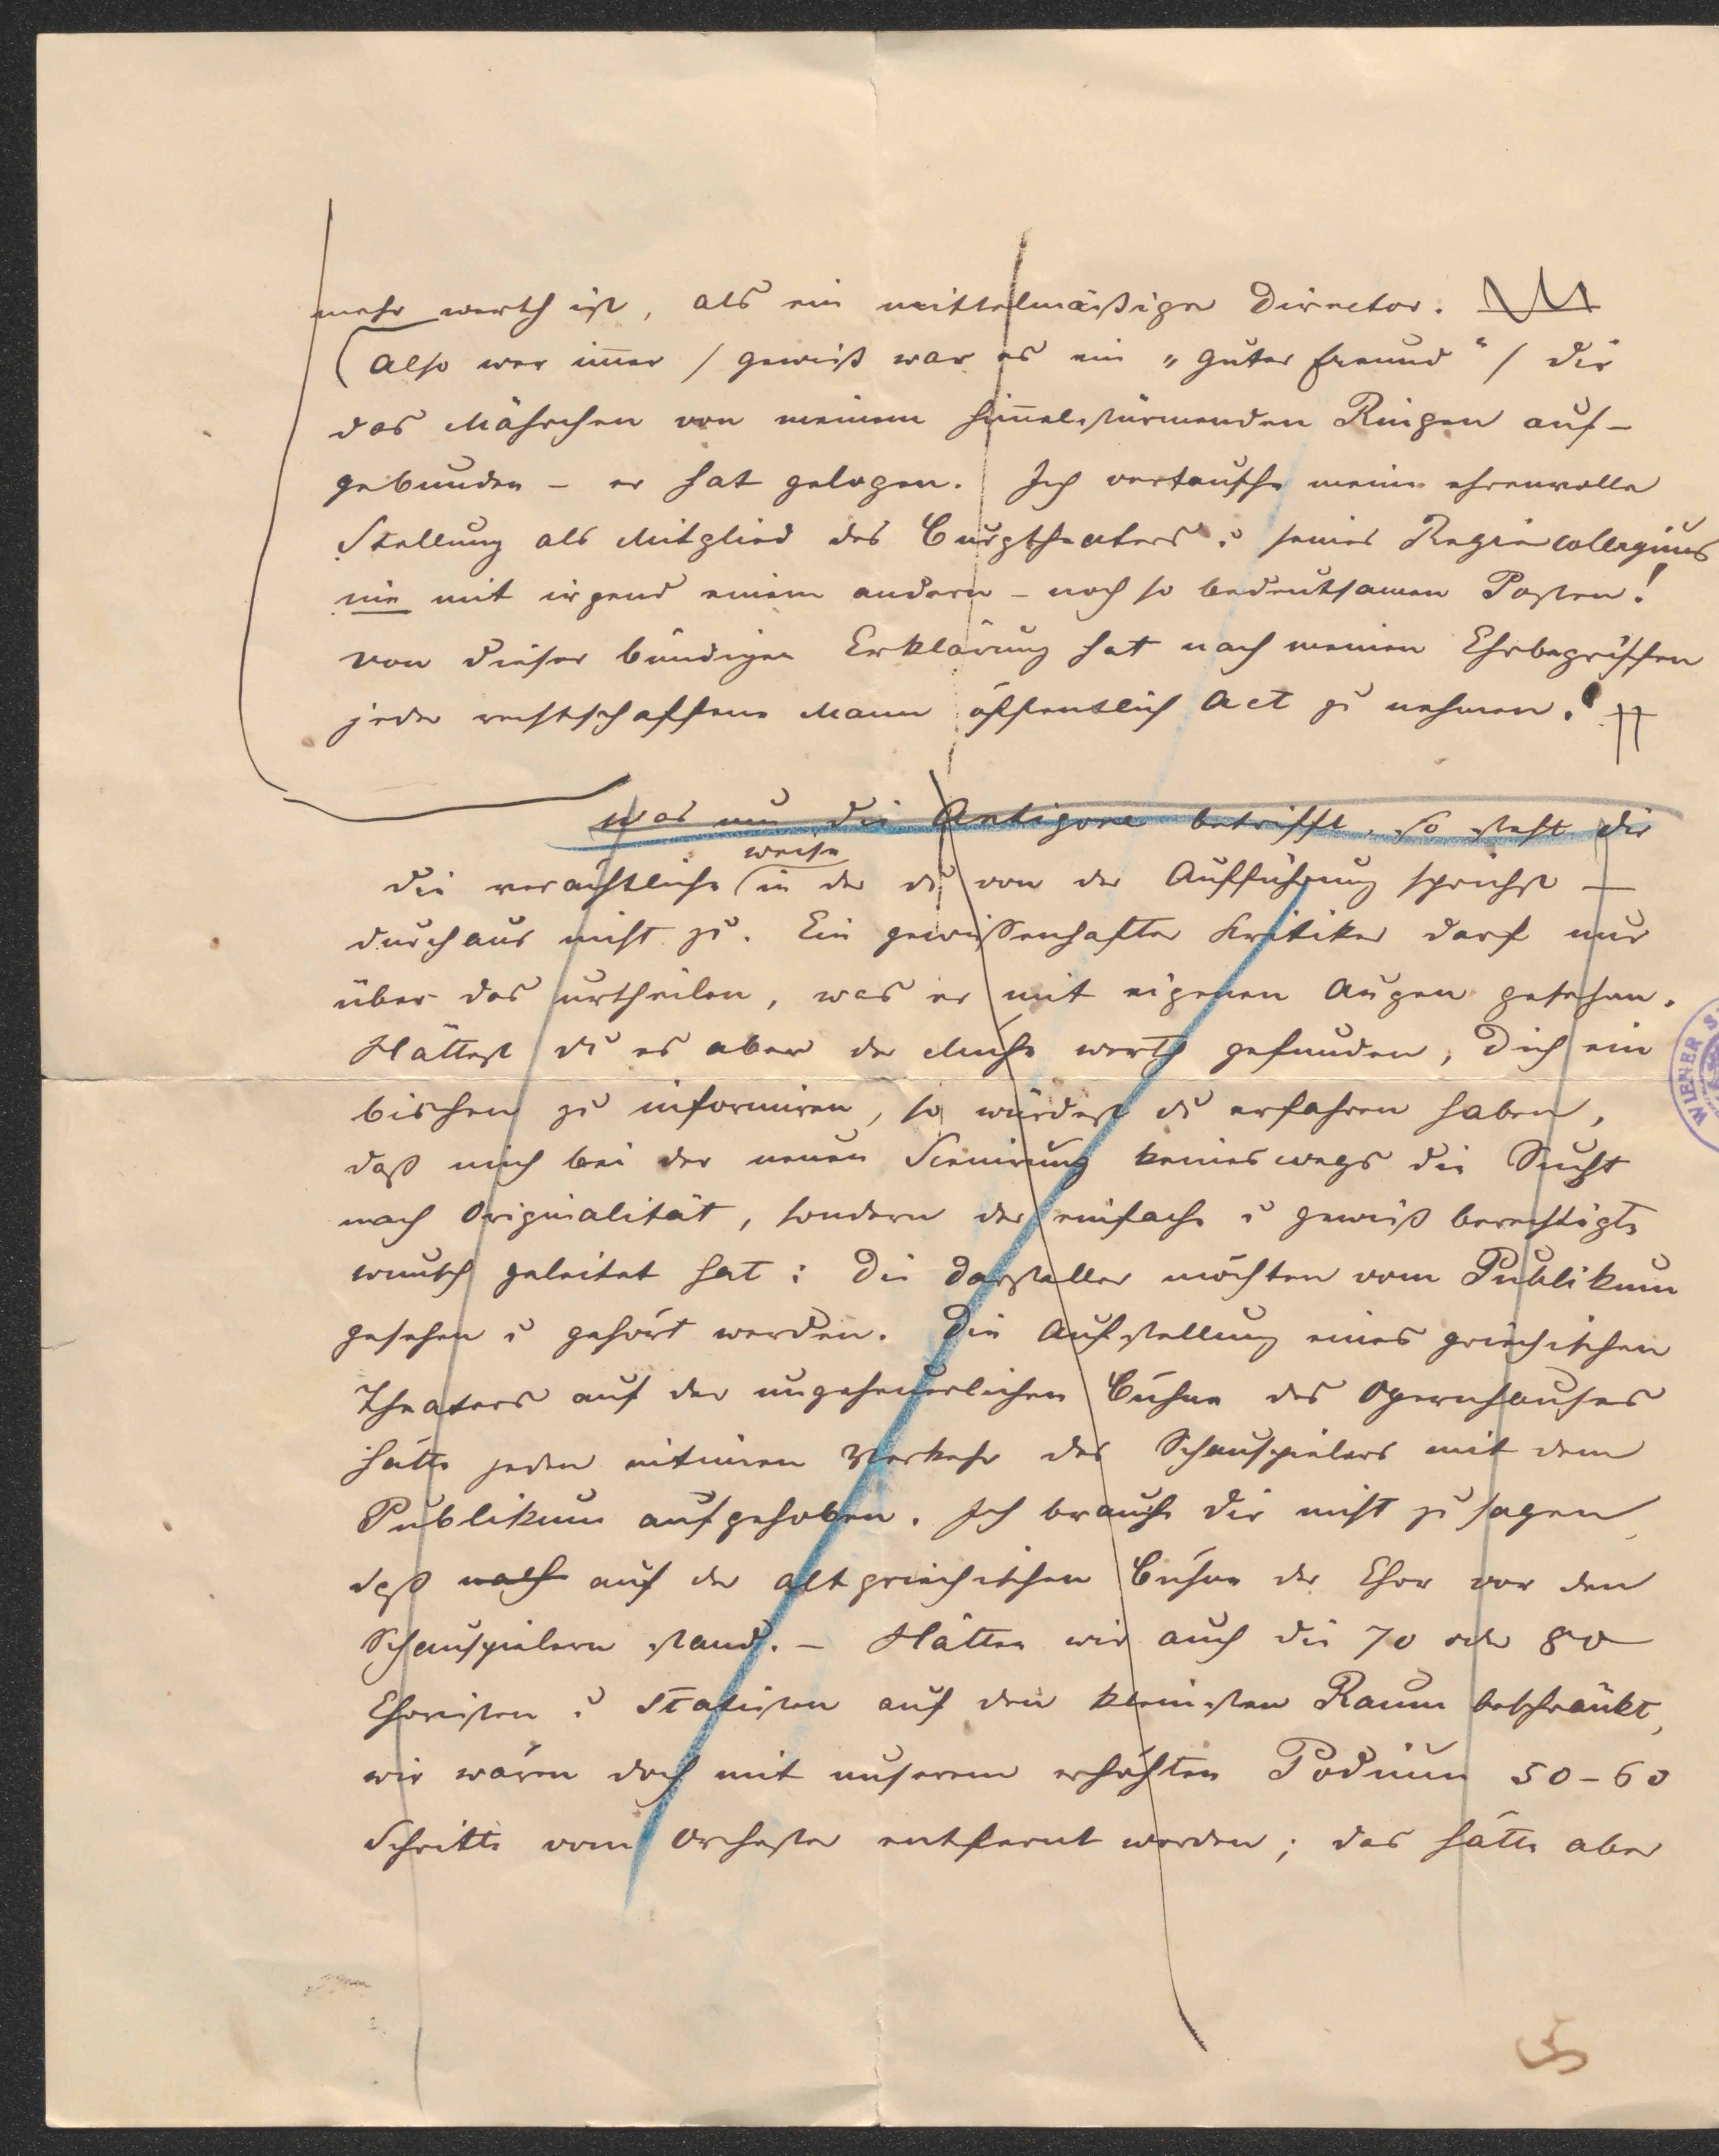 mehr werth ist, als ein mittelmäßiger Director.
(Also wer im̅er / gewiß war es ein „guter Freund“ / Dir
das Mährchen von meinem him̅elstürmenden Ringen auf-
gebunden – er hat gelogen. Ich vertausche meine ehrenvolle
Stellung als Mitglied des Burgtheaters u seines Regiecollegiums
nie mit irgend einem andern – noch so bedeutsamen Posten!
von dieser bündigen Erklärung hat nach meinen Ehrbegriffen
jeder rechtschaffene Mann öffentlich Act zu nehmen.!
Was nun die Antigone betrifft, so steht Dir
weise
die verächtliche (in der du von der Aufführung sprichst –
durchaus nicht zu. Ein gewissenhafter Kritiker darf nur
über das urtheilen, was er mit eigenen Augen gesehen.
Hättest du es aber der Mühe werth gefunden, Dich ein
bischen zu informiren, so würdest du erfahren haben,
daß mich bei der neuen Scenirung keineswegs die Sucht
nach Originalität, sondern der einfache u gewiß berechtigte
Wunsch geleitet hat: Die Darsteller möchten vom Publikum
gesehen u gehört werden. Die Aufstellung eines griechischen
Theaters auf der ungeheuerlichen Bühne des Opernhauses
hätte jeden intimen Verkehr des Schauspielers mit dem
Publikum aufgehoben. Ich brauche Dir nicht zu sagen,
daß auf der altgriechischen Bühne der Chor vor den
Schauspielern stand. – Hätten wir auch die 70 oder 80
Choristen u Statisten auf den kleinsten Raum beschränkt,
wir wären doch mit unserem erhöhten Podium 50–60
Schritte vom Orchester entfernt worden; das hätte aber
WIENER S